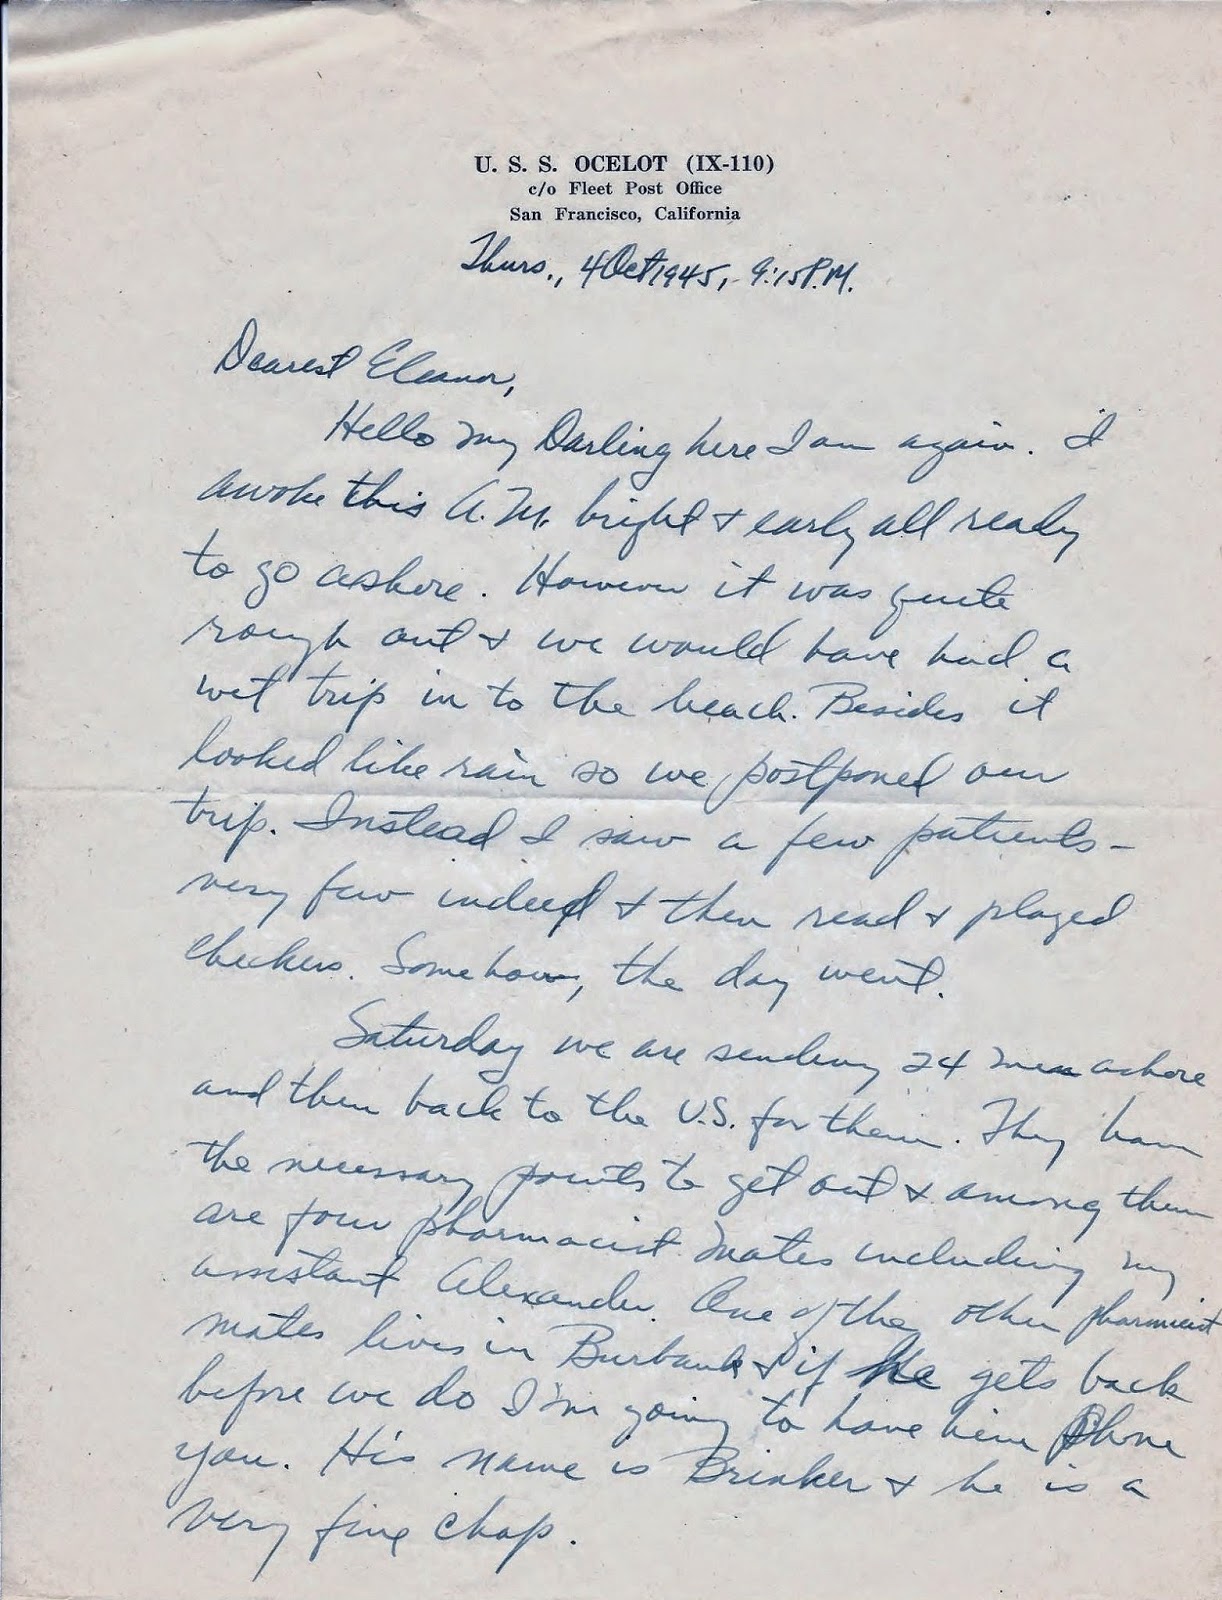 U. S. S. OCELOT (IX-110)
c/o Fleet Post Office
San Francisco, California
Thurs., 4 Oct 1945, 9:15 P.M.
Dearest Eleanor,
Hello my Darling here I am again. I
awoke this A.M. bright & early all ready
to go ashore. However it was quite
rough out & we would have had a
wet trip in to the beach. Besides it
looked like rain so we postponed our
trip. Instead I saw a few patients -
very few indeed & then read & played
checkers. Somehow, the day went.
Saturday we are sending 24 men ashore
and then back to the U.S. for them. They have
the necessary points to get out & among them
are four pharmacist mates including my
assistant Alexander. One of the other pharmicist
mates lives in Burbank & if he gets back
before we do I'm going to have him phone
you. His name is Brinker & he is a
very fine chap.